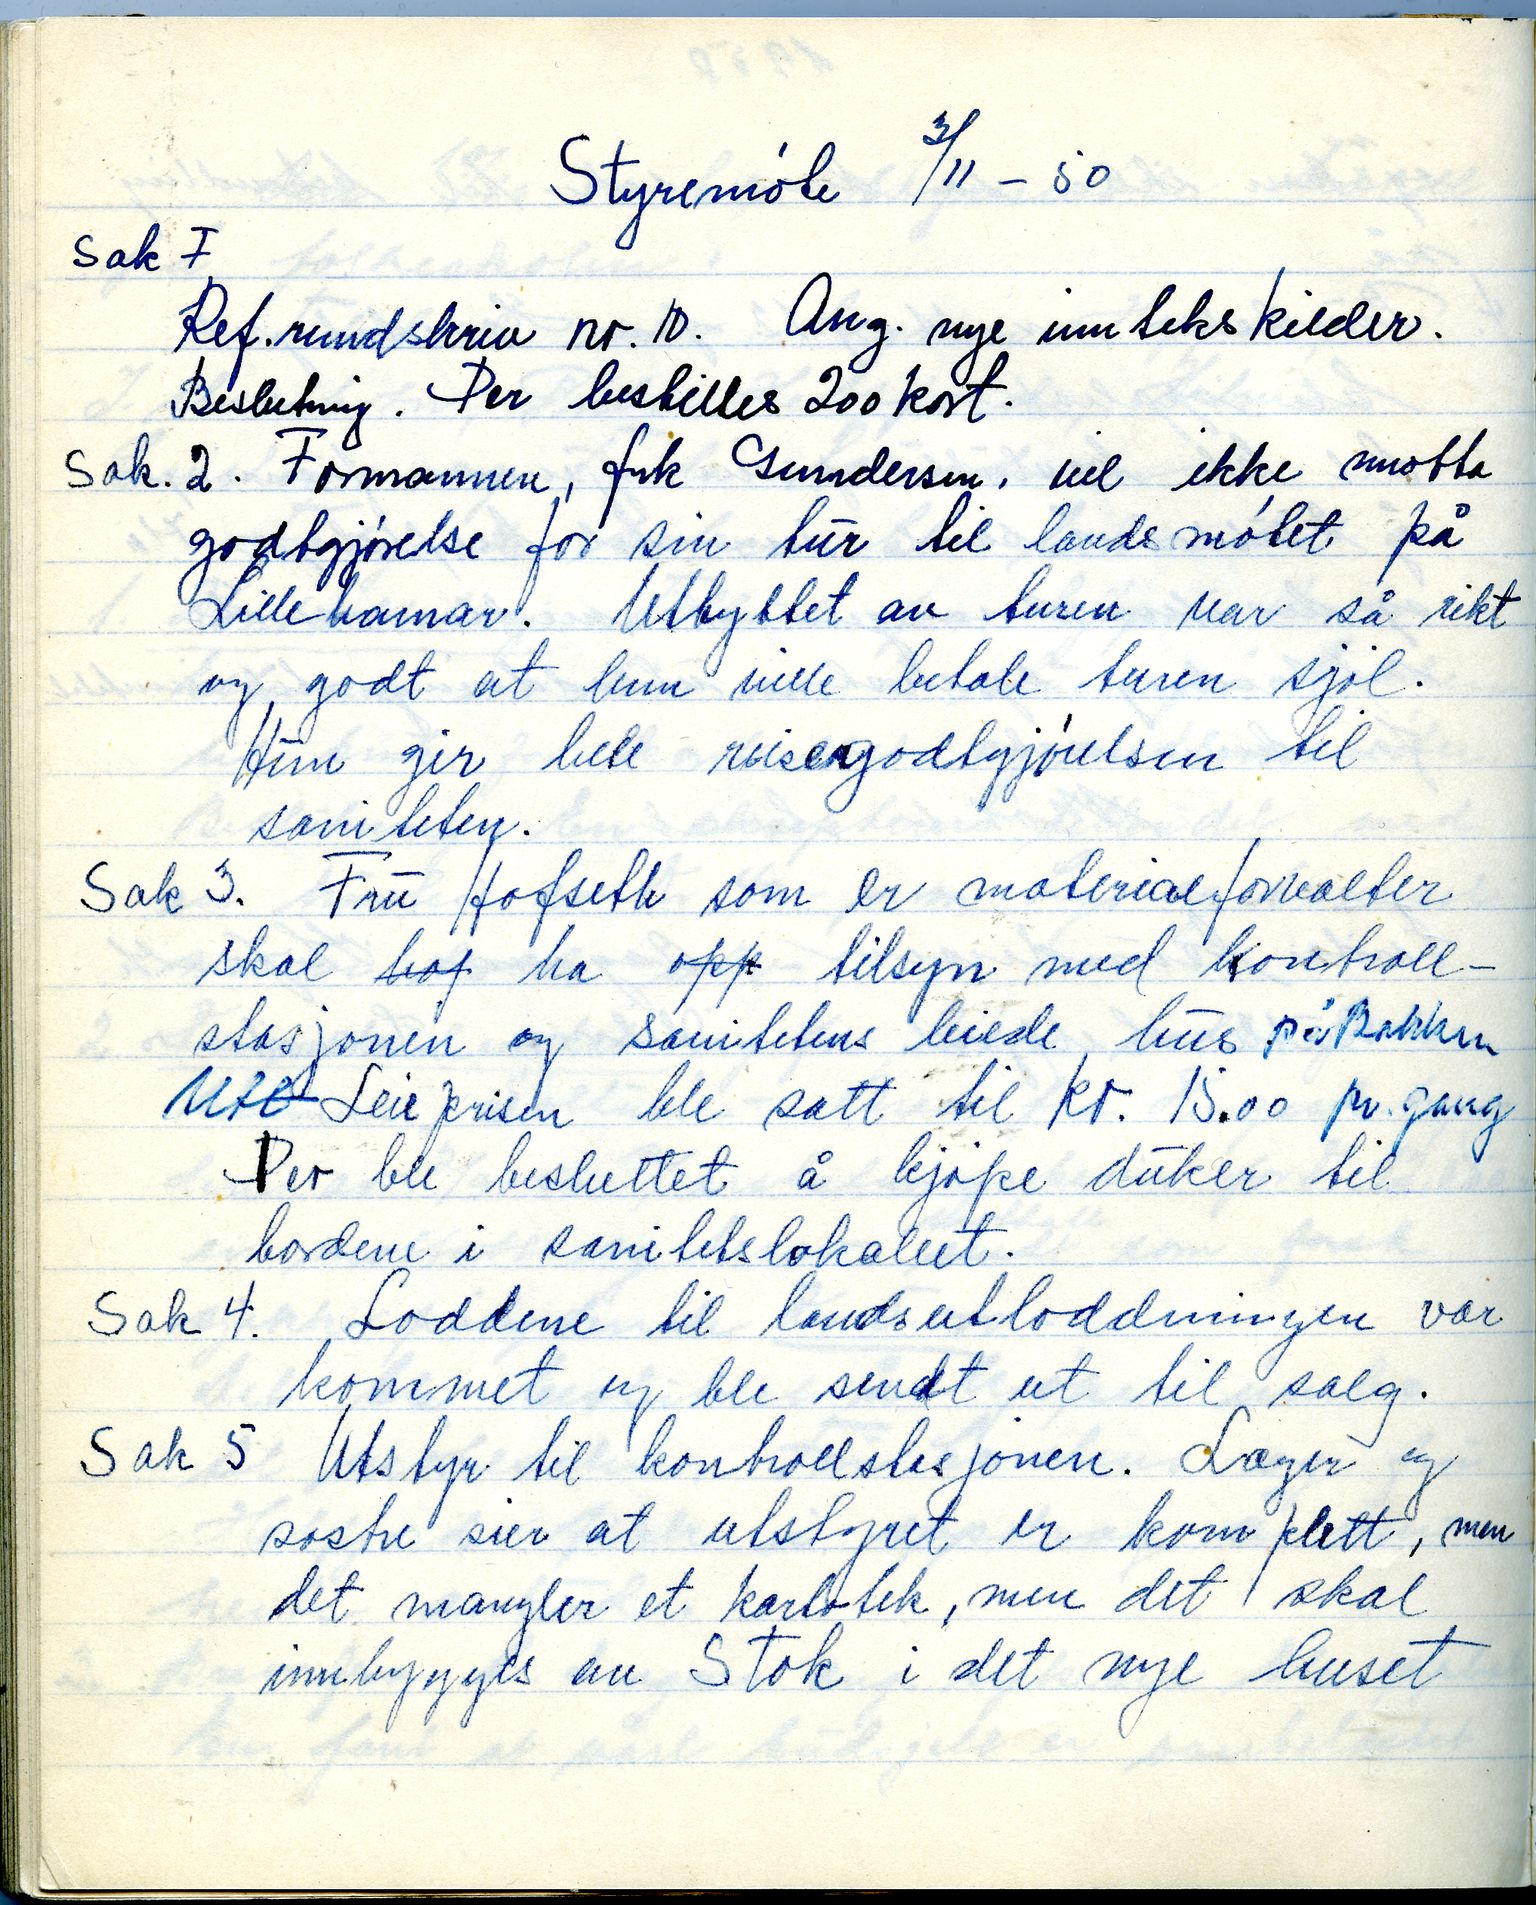 Styremóte 3/11 - 50
Sak I
Ref. rundskriv nr. 10. Ang. nye inntekskilder.
Beslutning. Der bestilles 200 kort.
Sak. 2. Formannen, frk Gundersen, vil ikke motta
godtgjórelse for sin tur til landsmótet på
Lillehamar. Utbyttet av turen var så rikt
og godt at hun ville betale turen sjöl.
Hun gir hele reisegodtgjórelsen til
saniteten.
Sak 3. Fru Hofseth som er materialforvalter
skal ha opp tilsyn med kontroll-
stasjonen og sanitetens leiede hus på Bakken
Leieprisen ble satt til kr. 15.00 pr. gang
Der ble besluttet å kjöpe duker til
bordene i sanitetslokalet.
Sak 4. Loddene til landsutloddningen var
kommet og ble sendt ut til salg.
Sak 5 Utstyr til kontrollstasjonen. Læger og
söstre sier at utstyret er komplett, men
det mangler et kartotek, men det skal
innbygges av Stok i det nye huset